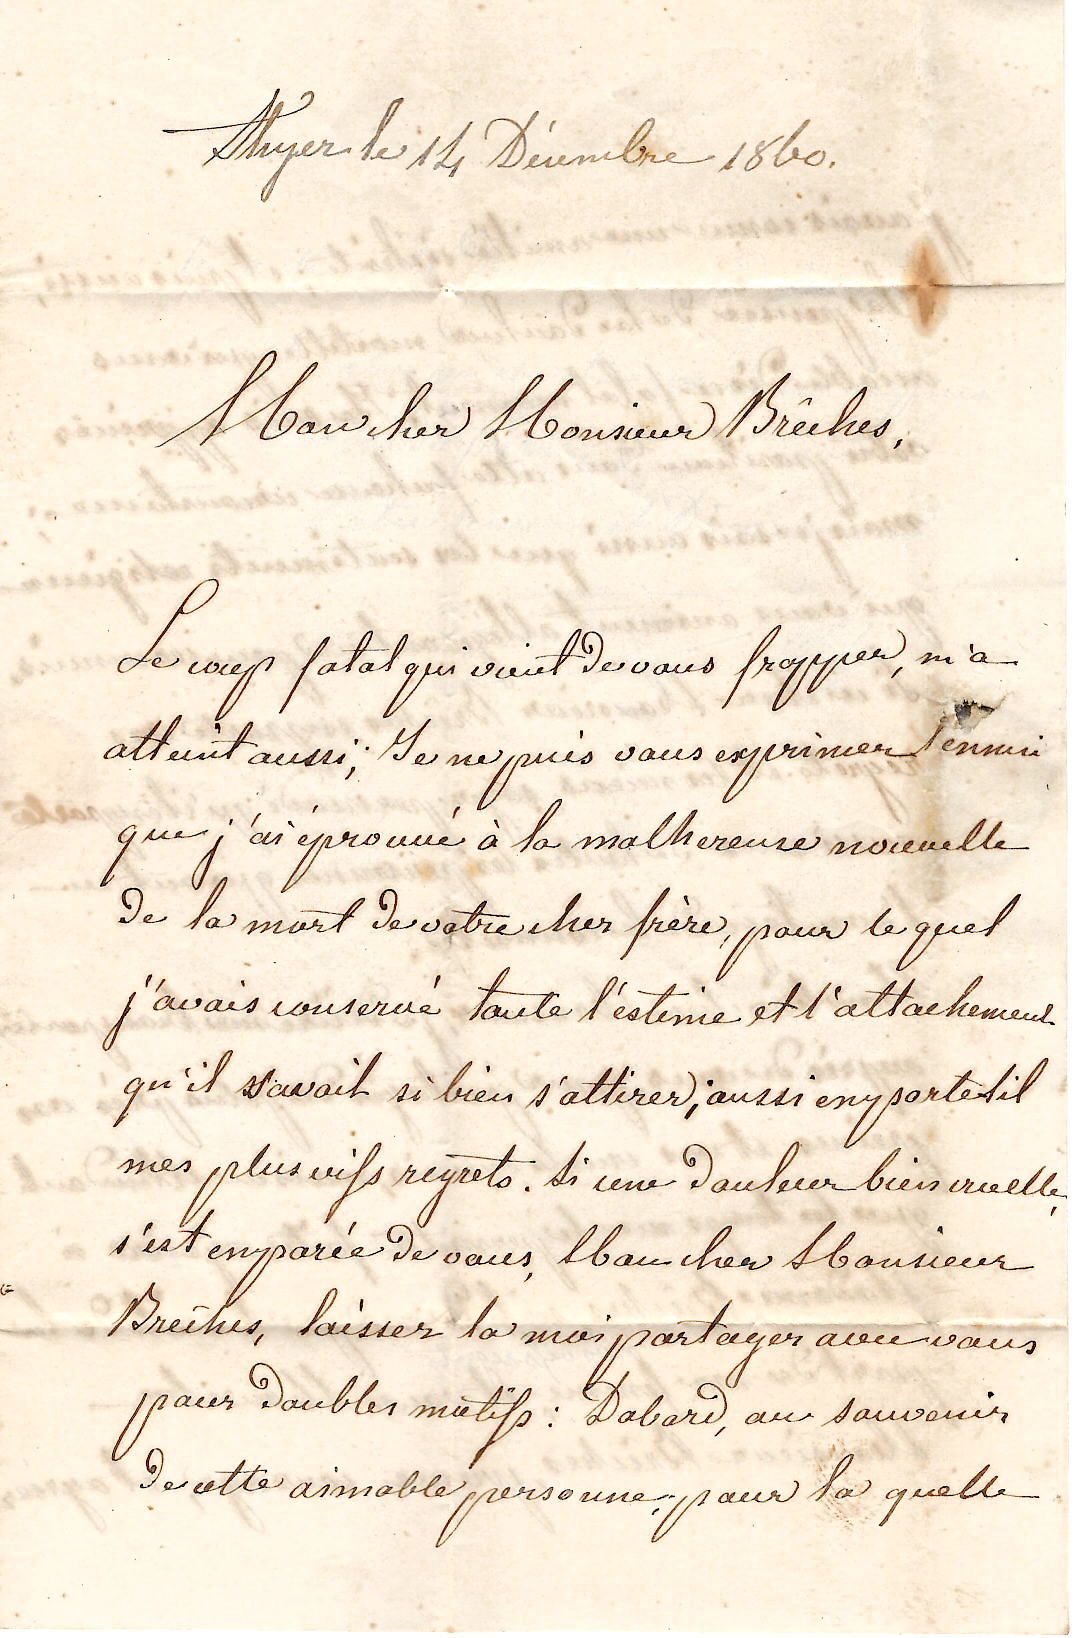 Thyer le 14 Décembre 1860.
Mon cher Monsieur Brêches,
Le coup fatal qui vient de vous frapper, m'a
atteint aussi; Je ne puis vous exprimer l'ennui
que j'ai éprouvé à la malhereuse nouvelle
de la mort de votre cher frère, pour le quel
j'avais conservé toute l'éstime et l'attachement
qu'il savait si bien s'attirer; aussi emporte til
mes plus vifs regrets. Si une douleur bien cruelle,
s'est emparée de vous, Mon cher Monsieur
Brêches, laisser la moi partager avec vous
pour doubles motifs: Dabord, au souvenir
de cette aimable personne, pour la quelle